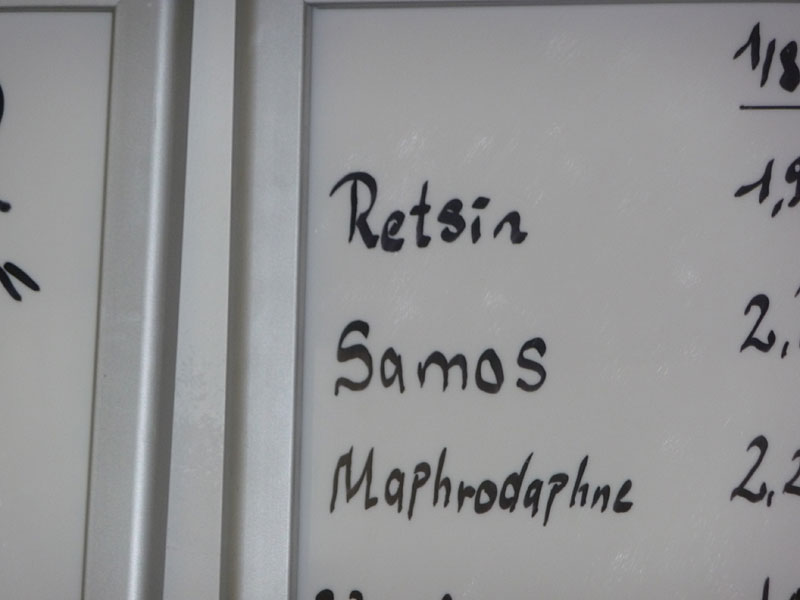 1/8
Retsin 1,9
Samos 2,
Maphrodaphne 2,2